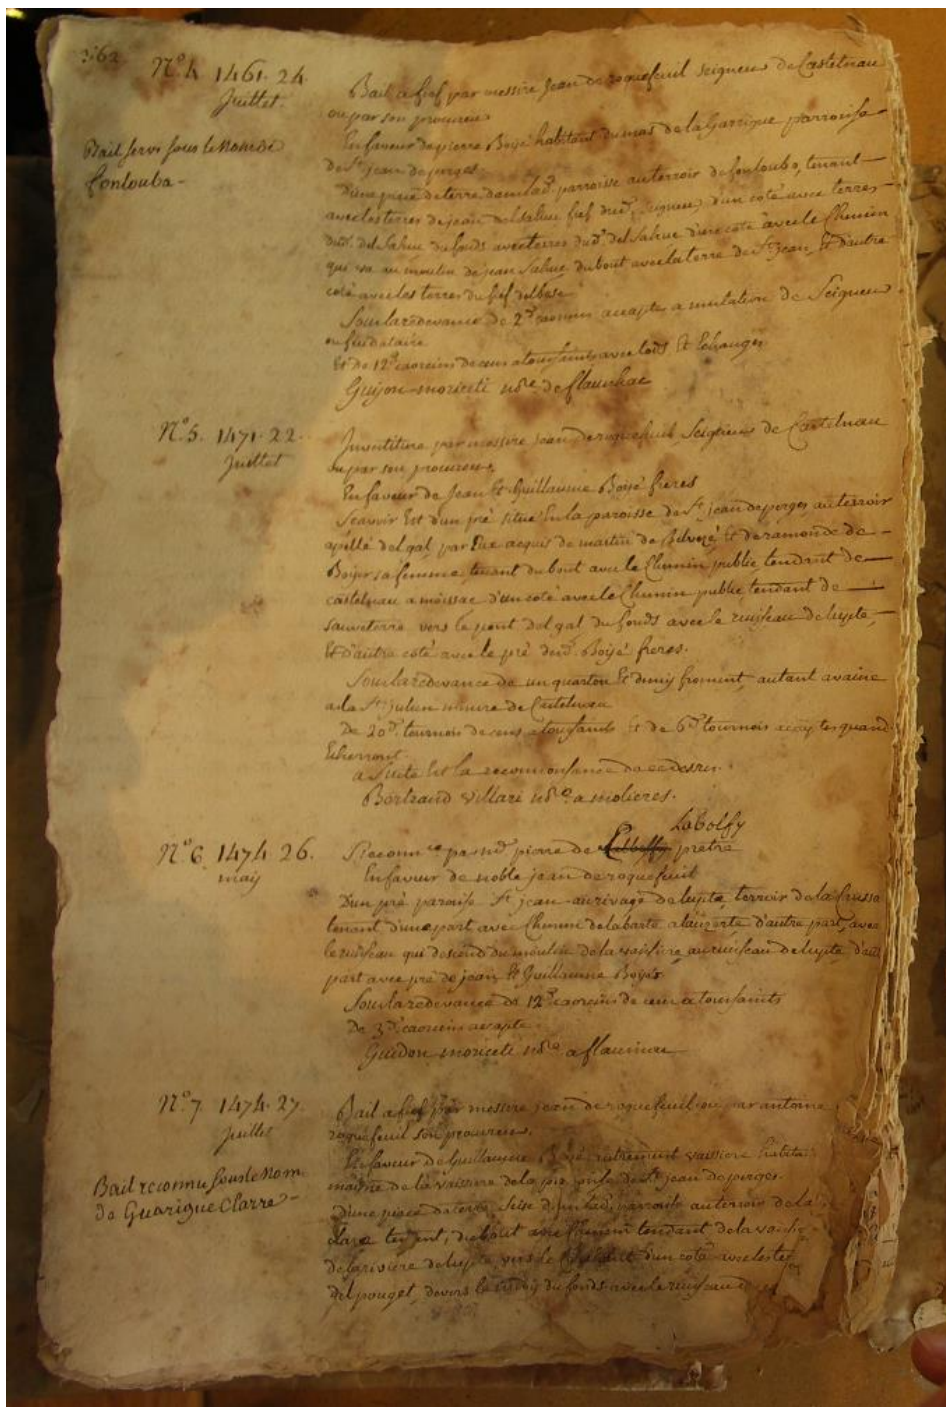 362
N.° 4. 1461. 24.
Juillet.
Bail servi sous le nom de
fonlouba -
Bail a fief par messire Jean de roquefeuil seigneur de Castelnau
ou par son procureur
En faveur de pierre Boyé habitant du mas de la Garrigue parroisse
de St. jean de perges.
D'une piece de terre dans lad. parroisse au terroir de fonloubo, tenant
avec les terres de jean del sahuc fief dud. seigneur, d'un coté avec terres
dud. del Sahuc du fonds avec terres dud. del Sahuc d'une coté avec le Chemin
qui va au moulin de jean Sahuc du bout avec la terre de St. jean, Et d'autre
coté avec les terres du fief
Sous la redevance de 2d. caorsins accapte a mutation de Seigneur
ou feudataire
Et de 12d. caorsins de cens a toussaints avec lods Et Echanges
Guijon moriceti nre. de flaunhac
N.° 5. 1471. 22.
Juillet
Investiture par messire jean de roquefeuil Seigneur de Castelnau
ou par son procureur,
En faveur de Jean Et Guillaume Boyé freres
Scavoir Est d'un pré situé En la paroisse de St. jean de perges au terroir
apellé del gal par Eux acquis de martin de Et de ramonde de
Boyer sa femme tenant du bout avec le Chemin public tendant de
castelnau a moissac d'un coté avec le Chemin public tendant de
sauveterre vers le pont del gal du fonds avec le ruisseau de lupte,
Et d'autre coté avec le pré desd. Boyé freres.
Sous la redevance de un quarton Et demy froment, autant avoine
a la St. julien mesure de Castelnau
De 20d. tournois de cens a toussaints Et de 6d. tournois acaptes quand
Echerront.
a suite Est la reconnoissance de ce dessus.
Bertrand Villari nre. a molieres.
N.° 6. 1474. 26.
may
Reconnce. par nd. pierre de Labolfy pretre
En faveur de noble jean de roquefeuil
D'un pré paroisse St. jean au rivage de lupte, terroir de la Crussa
tenant d'une part avec Chemin de labarte a lauzerte d'autre part, avec
le ruisseau qui descend du moulin de la vaissiere au ruisseau de lupte d'autre
part avec pré de jean Et Guillaume Boyés
Sous la redevance de 12d. caorsins de cens a toussaints
De 3d. caorsins acapte
Guidon moriceti nre. a flaunhac
N.° 7. 1474. 27.
Juillet
Bail reconnu sous le nom
de Guarigue Clarre -
Bail a fief par messire jean de roquefeuil ou par antoine
roquefeuil son procureur.
En faveur de Guillaume Boyé autrement vaissiere habitant
de la vaissiere de la de St. jean de perges.
D'une piece de terre, sise dans lad. parroisse au terroir de la
clare tenent, du bout avec Chemin tendant de la
de la riviere de lupte, vers le d'un coté avec les
del pouget, devers le du fonds avec le ruisseau de